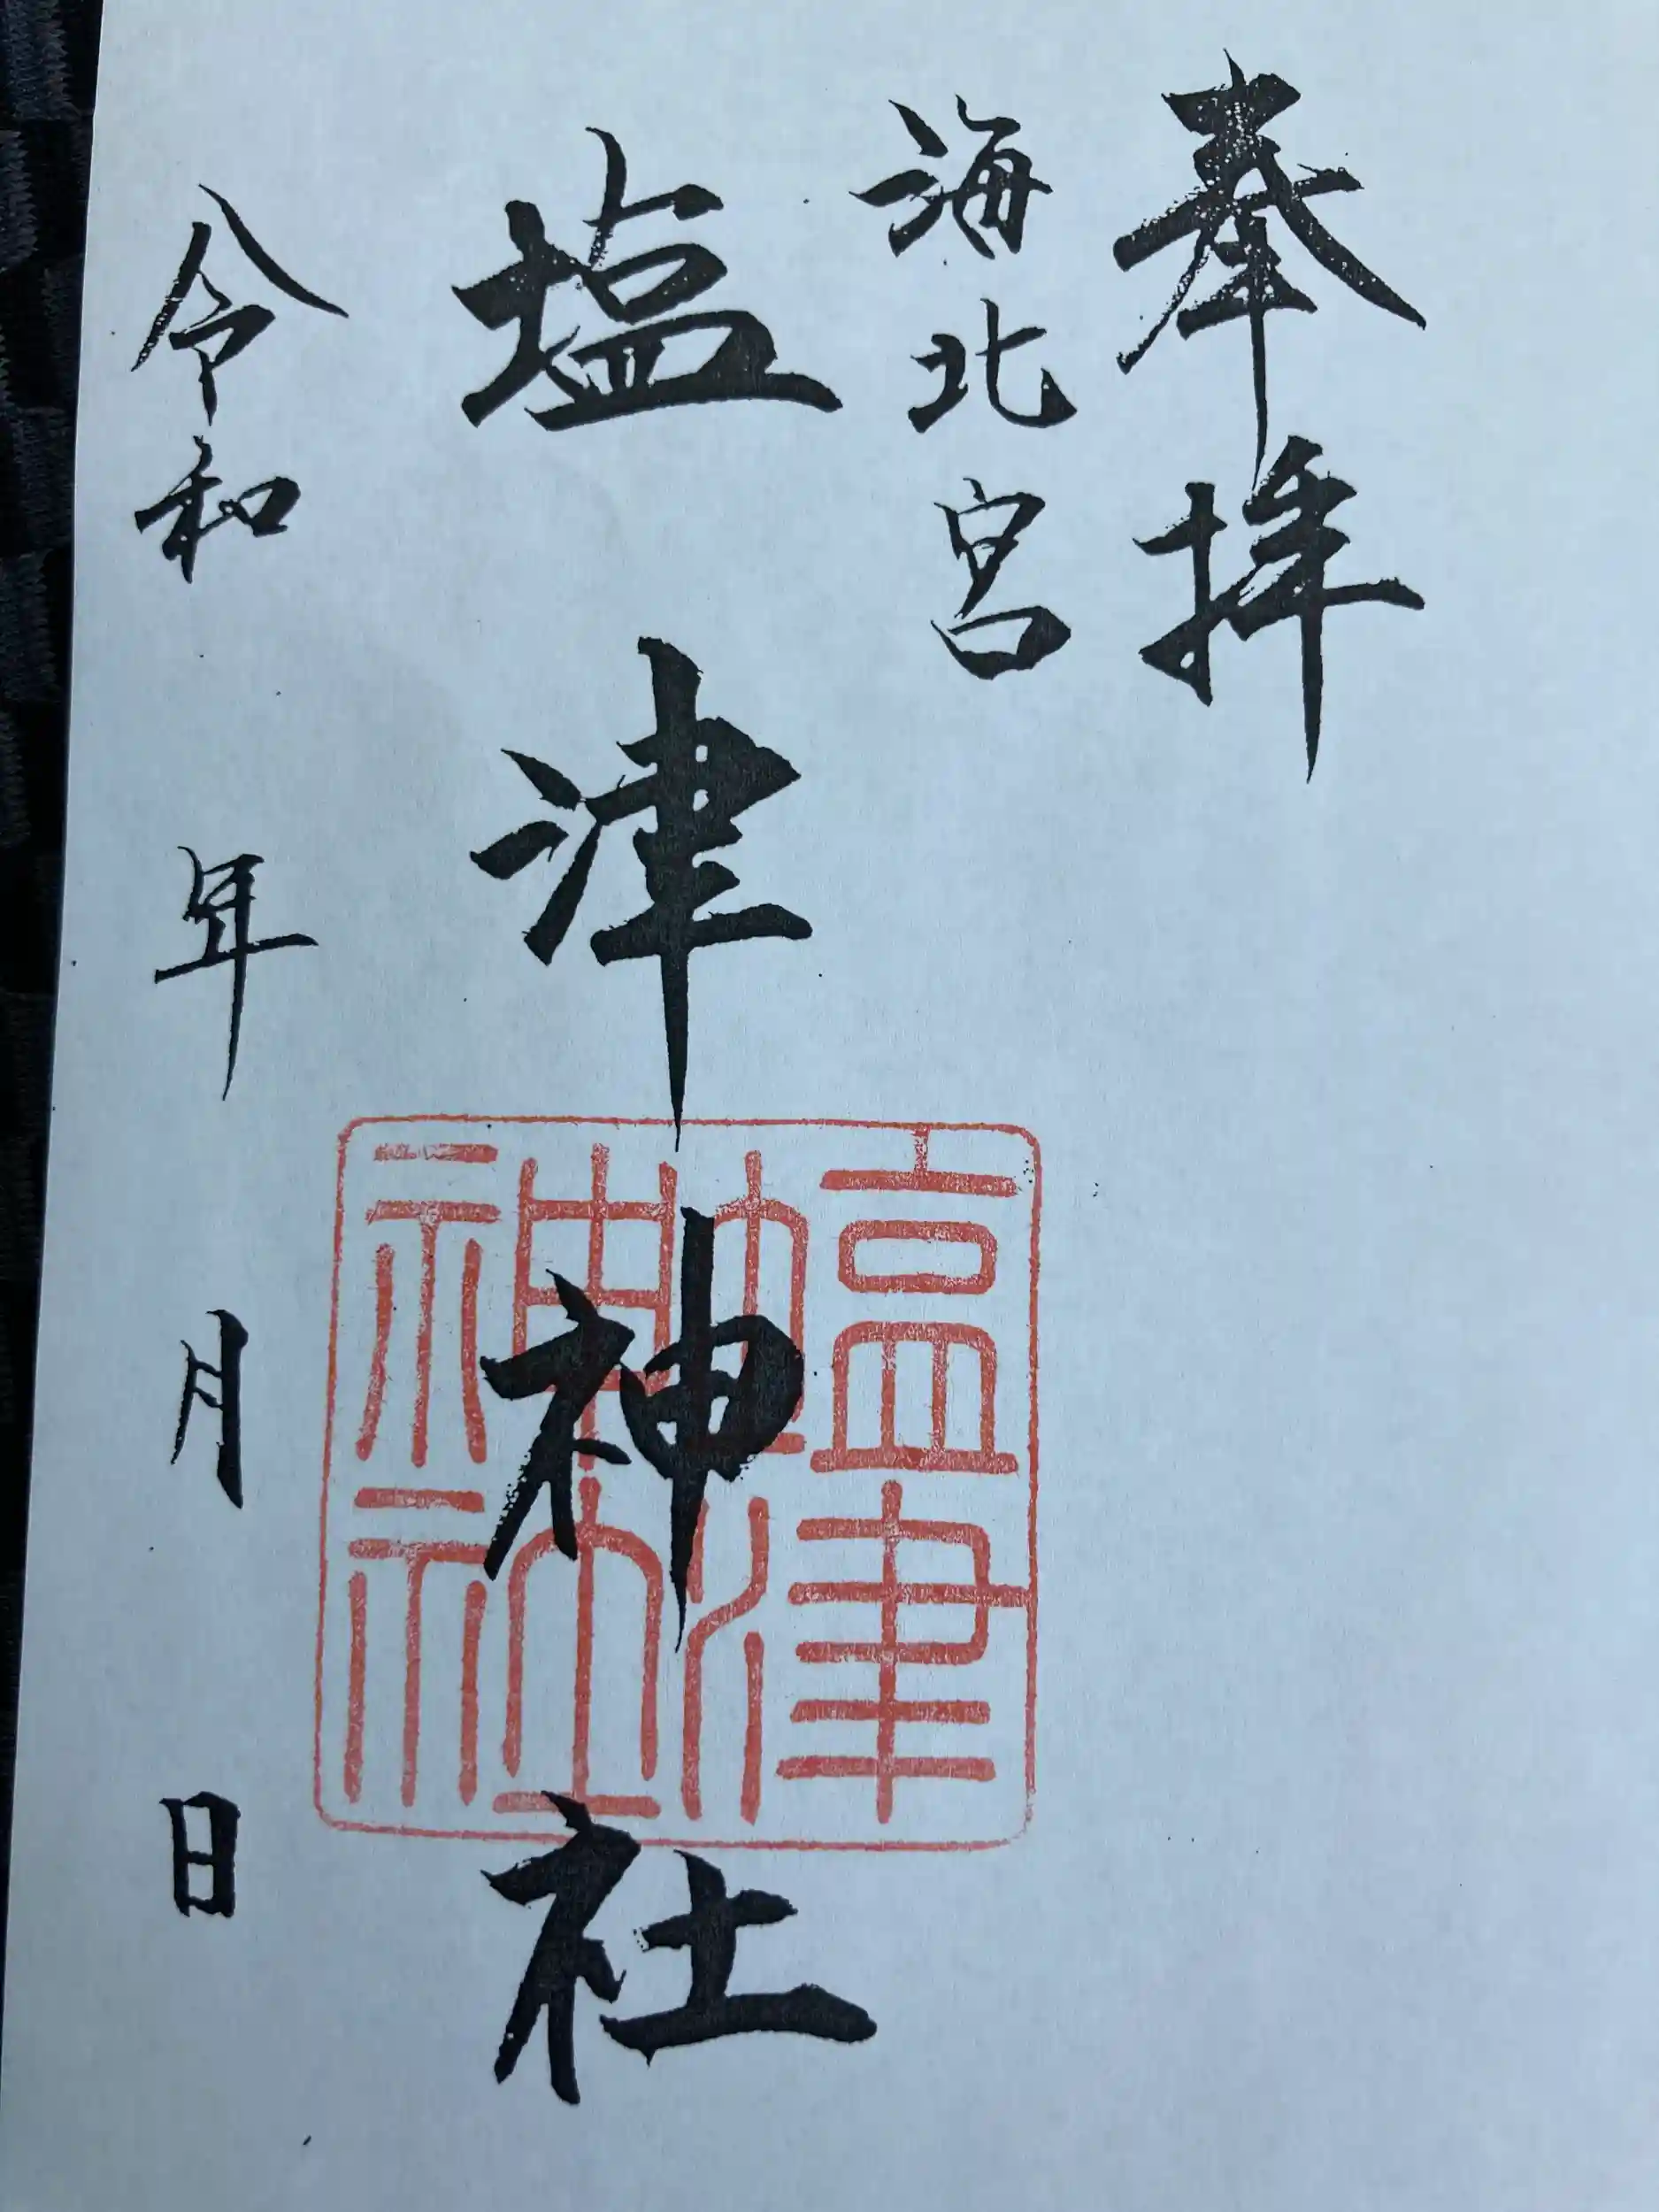 奉拝
海北宮
塩津神社
令和 年 月 日
塩津
神社